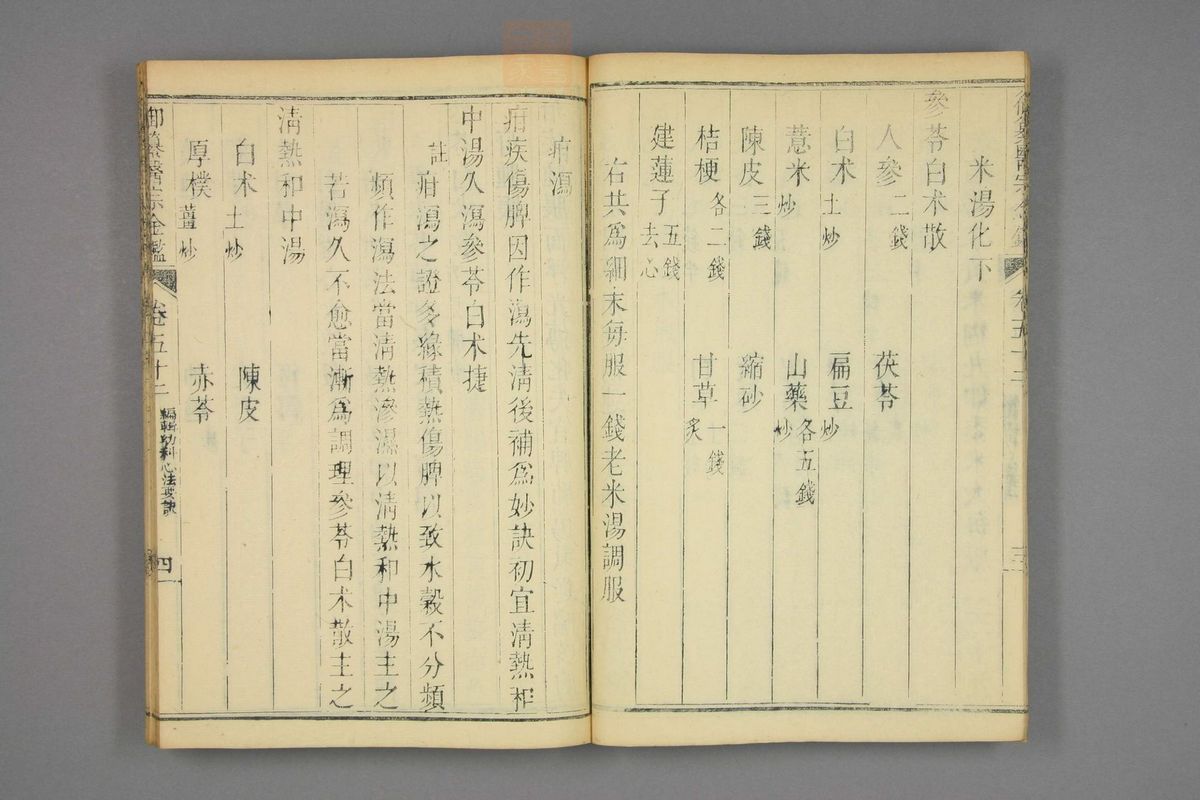 米湯化下
參苓白术散
人參二錢 茯苓
白术土炒 扁豆炒
薏米炒 山藥炒各五錢
陳皮三錢 縮砂
桔梗各二錢 甘草炙一錢
建蓮子去心五錢
右共為細末每服一錢老米湯調服
疳瀉
疳疾傷脾因作瀉先清後補為妙訣初宜清熱和
中湯久瀉參苓白术捷
註疳瀉之證多緣積熱傷脾以致水穀不分頻
頻作瀉法當清熱滲濕以清熱和中湯主之
若瀉久不愈當漸為調理參苓白术散主之
清熱和中湯
白术土炒 陳皮
厚樸薑炒 赤苓
御纂醫宗金鑑 卷五十二 編輯幼科心法要訣 四